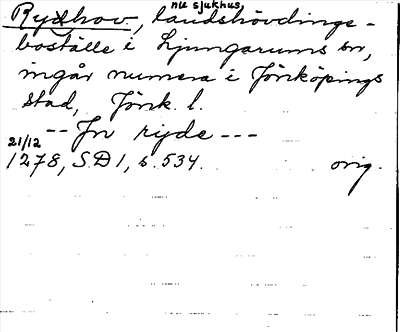 nu sjukhus,
Rydhov, landshövdinge-
boställe i Ljungarums sn,
ingår numera i Jönköpings
stad, Jönk. l.
-- Jn ryde ---
21/12
1278, SD 1, s. 534. orig.